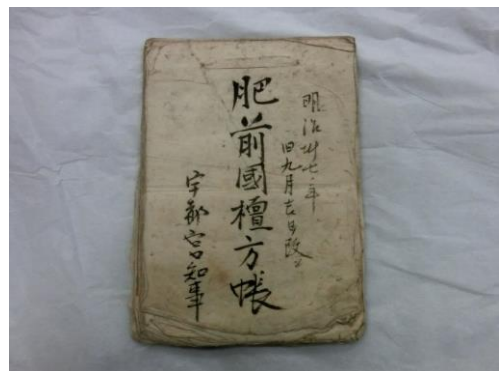 明治廿七年
旧九月吉日改
肥前國檀方帳
宇都宮知事